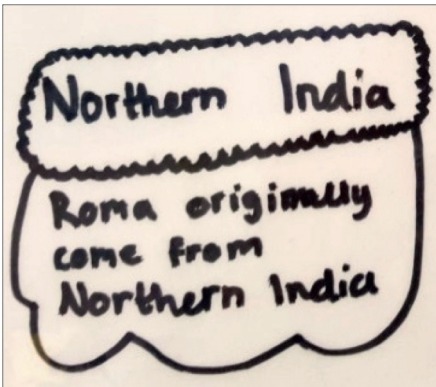 Northern India
Roma originally
come from
Northern India